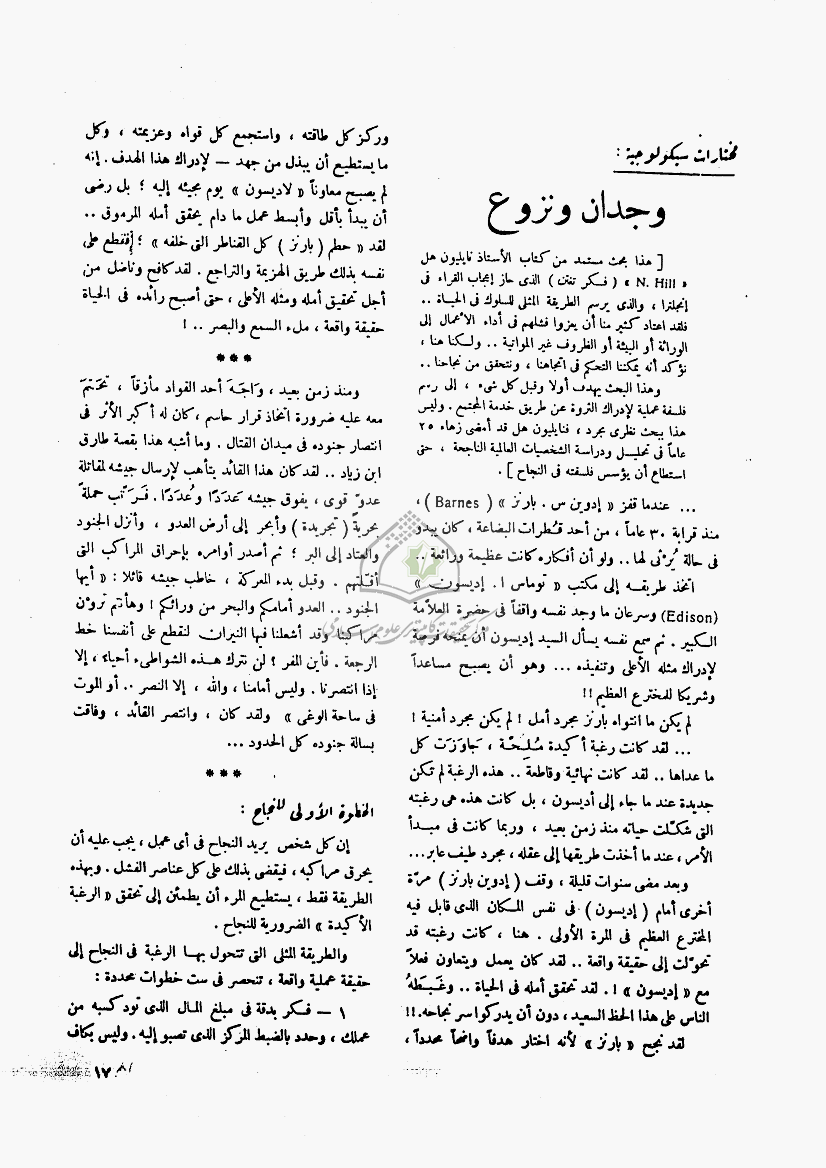 مختارات سيكولوجية :
وجدان ونزوع
[ هذا بحث مستمد من كتاب الأستاذ نابليون هل
« N. Hill » ( فكر تغتن ) الذى حاز إعجاب القراء فى
إنجلترا ، والذى يرسم الطريقة المثلى للسلوك فى الحياة ..
فلقد اعتاد كثير منا أن يعزوا فشلهم فى أداء الأعمال إلى
الوراثة أو البيئة أو الظروف غير المواتية .. ولكنا هنا ،
نؤكد أنه يمكننا التحكم فى اتجاهنا ، ونتحقق من نجاحنا ..
وهذا البحث يهدف أولا وقبل كل شىء ، إلى رسم
فلسفة عملية لإدراك الثروة عن طريق خدمة المجتمع . وليس
هذا ببحث نظرى مجرد ، فنابليون هل قد أمضى زهاء ٢٥
عاماً فى تحليل ودراسة الشخصيات العالية الناجحة ، حتى
استطاع أن يؤسس فلسفته فى النجاح ] .
... عندما قفز « إدوين س . بارنز » ( Barnes ) ،
منذ قرابة ٣٠ عاماً ، من أحد قطرات البضاعة ، كان يبدو
فى حالة يُرثى لها .. ولو أن أفكاره كانت عظيمة ورائعة ..
اتخذ طريقه إلى مكتب « توماس ا . إديسون »
(Edison) وسرعان ما وجد نفسه واقفاً فى حضرة العلاّمة
الكبير . ثم سمع نفسه يسأل السيد إديسون أن يمنحه فرصة
لإدراك مثله الأعلى وتنفيذه ... وهو أن يصبح مساعداً
وشريكا للمخترع العظيم !!
لم يكن ما انتواه بارنز مجرد أمل ! لم يكن مجرد أمنية !
... لقد كانت رغبة أكيدة مُلِحّة ، جَاوَزَت كل
ما عداها .. لقد كانت نهائية وقاطعة .. هذه الرغبة لم تكن
جديدة عند ما جاء إلى أديسون ، بل كانت هذه هى رغبته
التى شكّلت حياته منذ زمن بعيد ، وربما كانت فى مبدأ
الأمر ، عند ما أخذت طريقها إلى عقله ، مجرد طيف عابر...
وبعد مضى سنوات قليلة ، وقف ( إدوين بارنز ) مرّة
أخرى أمام ( إديسون ) فى نفس المكان الذى قابل فيه
المخترع العظيم فى المرة الأولى . هنا ، كانت رغبته قد
تحوّلت إلى حقيقة واقعة .. لقد كان يعمل ويتعاون فعلاً
مع « إديسون » ! . لقد تحقق أمله فى الحياة .. وغَبَطَهُ
الناس على هذا الحظ السعيد ، دون أن يدركوا سر نجاحه.!!
لقد نجح « بارنز » لأنه اختار هدفاً واضحاً محدداً ،
وركز كل طاقته ، واستجمع كل قواه وعزيمته ، وكل
ما يستطيع أن يبذل من جهد — لإدراك هذا الهدف . إنه
لم يصبح معاوناً « لاديسون » يوم مجيئه إليه ؛ بل رضى
أن يبدأ بأقل وأبسط عمل ما دام يحقق أمله المرموق ..
لقد « حطم ( بارنز ) كل القناطر التى خلفه » ؛ فقطع على
نفسه بذلك طريق الهزيمة والتراجع . لقد كافح وناضل من
أجل تحقيق أمله ومثله الأعلى ، حتى أصبح رائده فى الحياة
حقيقة واقعة ، ملء السمع والبصر .. !
***
ومنذ زمن بعيد ، وَاجَهَ أحد القواد مأزقاً ، تحَتّم
معه عليه ضرورة اتخاذ قرار حاسم ، كان له أكبر الأثر فى
انتصار جنوده فى ميدان القتال . وما أشبه هذا بقصة طارق
ابن زياد .. لقد كان هذا القائد يتأهب لإرسال جيشه لمقاتلة
عدوّ قوى ، يفوق جيشه عَدَداً وعُدَداً . فَرَتّب حملةً
بحريةً ( تجريدة ) وأبحر إلى أرض العدو ، وأنزل الجنود
والعتاد إلى البر ؛ ثم أصدر أوامره بإحراق المراكب التى
أقبلتهم . وقبل بدء المعركة ، خاطب جيشه قائلا : « أيها
الجنود .. العدو أمامكم والبحر من ورائكم ! وهأنتم تروْن
مراكبنا وقد أشعلنا فيها النيران لنقطع على أنفسنا خط
الرجعة . فأين المفر ؟ لن نترك هذه الشواطىء أحياءً ، إلا
إذا انتصرنا . وليس أمامنا ، والله ، إلا النصر .. أو الموت
فى ساحة الوغى » ولقد كان ، وانتصر القائد ، وفاقت
بسالة جنوده كل الحدود ...
***
الخطوة الأولى للنجاح :
إن كل شخص يريد النجاح فى أى عمل ، يجب عليه أن
يحرق مراكبه ، فيقضى بذلك على كل عناصر الفشل . وبهذه
الطريقة فقط ، يستطيع المرء أن يطمئن إلى تحقق « الرغبة
الأكيدة » الضرورية للنجاح .
والطريقة المثلى التى تتحول بها الرغبة فى النجاح إلى
حقيقة عملية واقعة ، تنحصر فى ست خطوات محددة :
١ — فكر بدقة فى مبلغ المال الذى تود كسبه من
عملك ، وحدد بالضبط المركز الذى تصبو إليه . وليس بكاف
١٧